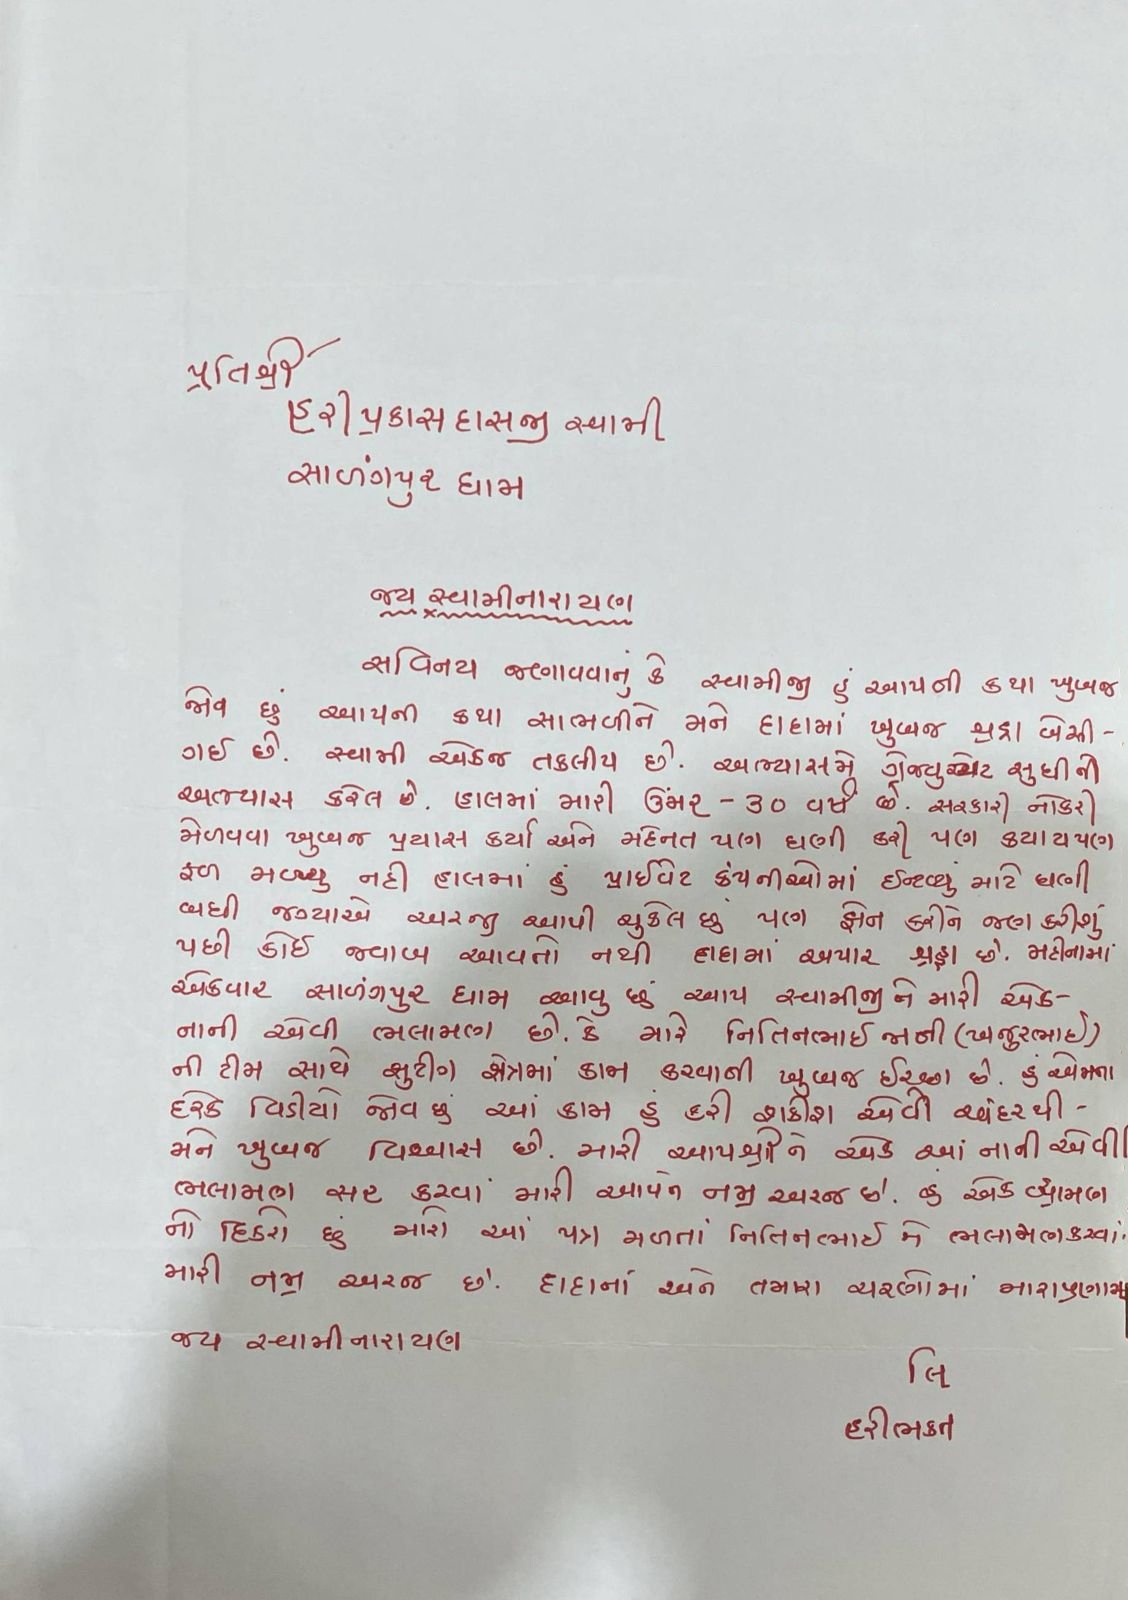 પ્રતિશ્રી
હરીપ્રકાસદાસજી સ્વામી
સાળંગપુર ધામ
જય સ્વામીનારાયણ
સવિનય જણાવવાનું કે સ્વામીજી હું આપની કથા ખુબજ
જોવ છું આપની કથા સાભળીને મને દાદામાં ખુબજ શ્રદ્રા બેસી-
ગઈ છે. સ્વામી એકજ તકલીય છે. અભ્યાસમે ગ્રેજ્યુએટ સુધીની
અભ્યાસ કરેલ છે. હાલમાં મારી ઉંમર - 30 વર્ષ છે. સરકારી નોકરી
મેળવવા ખુબજ પ્રયાસ કર્યા અને મહેનત પણ ઘણી કરી પણ કયાયપણ
ફળ મળ્યુ નહી હાલમાં હું પ્રાઈવેટ કંપનીઓમાં ઈન્ટવ્યું માટે ઘણી
બધી જગ્યાએ અરજી આપી ચુકેલ છું પણ ફોન કરીને જણ કરીશું
પછી કોઈ જવાબ આવતો નથી દાદામાં અપાર શ્રદ્ધા છે. મહીનામાં
એકવાર સાળંગપુર ધામ આવુ છું આપ સ્વામીજીને મારી એક-
નાની એવી ભલામણ છે. કે મારે નિતિનભાઈ જાની (ખજુરભાઈ)
ની ટીમ સાથે શુટીગ ક્ષેત્રમાં કામ કરવાની ખુબજ ઈચ્છા છે. હું એમના
દરેક વિડીયો જોવ છું આં કામ હું કરી શકીશ એવી અંદરથી -
મને ખુબજ વિશ્વાસ છે. મારી આપશ્રીને એક આં નાની એવી
ભલામણ સહ કરવાં મારી આપને નમ્ર અરજ છે. હું એક બ્રામણ
નો દિકરો છું મારો આં પત્ર મળતાં નિતિનભાઈ ને ભલામણકરવાં.
મારી નમ્ર અરજ છે. દાદાનાં અને તમારા ચરણોમાં મારાપ્રણામ
જય સ્વામીનારાયણ
લિ
હરીભકત